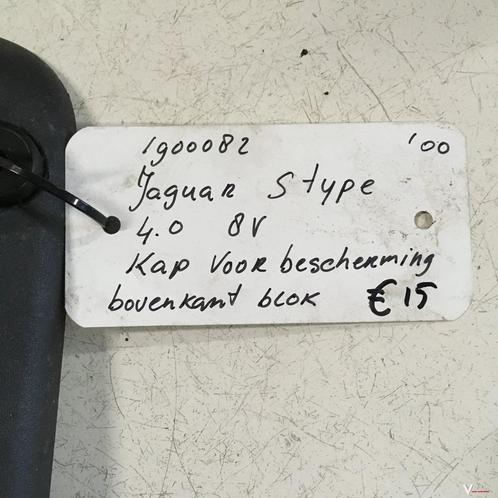 1900082 '00
Jaguar Stype
4.0 8V
Kap voor bescherming
bovenkant blok €15